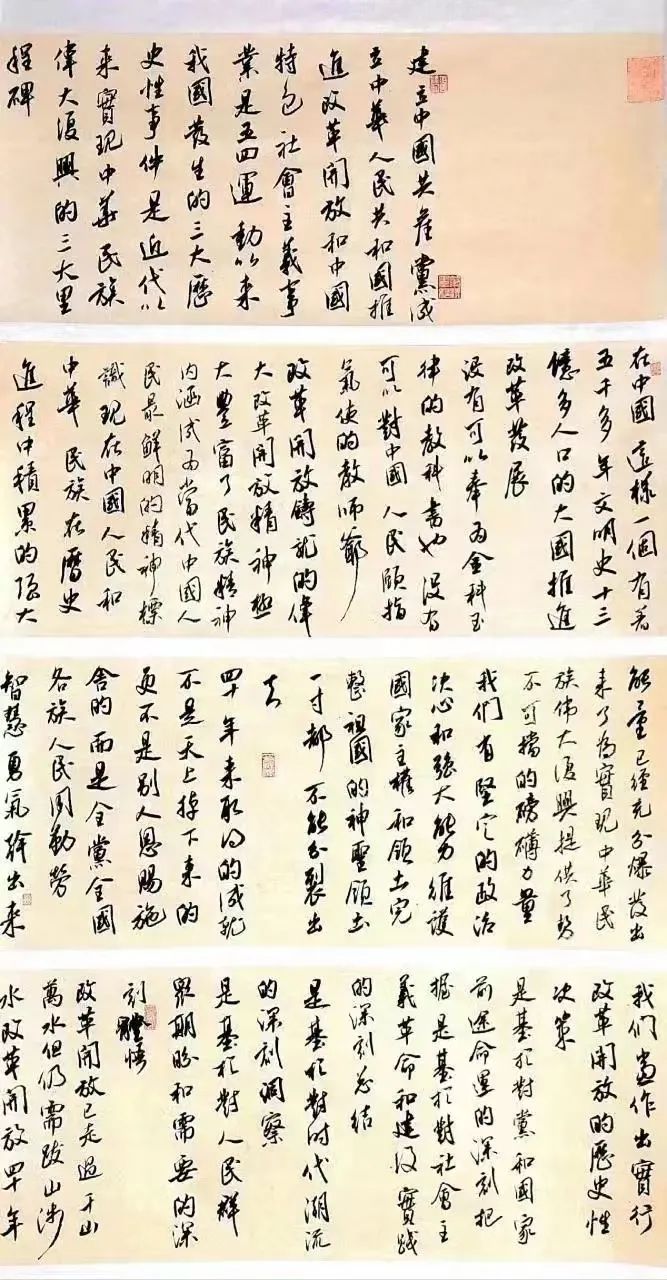 建立中國共産黨成
立中華人民共和國推
進改革開放和中國
特色社會主義事
業是五四運動以来
我國發生的三大歷
史性事件是近代以
来實現中華民族
偉大復興的三大里
程碑
在中國這樣一個有着
五千多年文明史十三
億多人口的大國推進
改革發展
没有可以奉為金科玉
律的教科書也没有
可以對中國人民頤指
氣使的教師爺
改革開放鑄就的偉
大改革開放精神極
大豐富了民族精神
内涵成為當代中國人
民最鮮明的精神標
識現在中國人民和
中華民族在曆史
進程中積累的强大
能量已經充分爆發出
来了為實現中華民
族偉大復興提供了勢
不可擋的磅礴力量
我們有堅定的政治
决心和强大能力維護
國家主權和領土完
整祖國的神聖領土
一寸都不能分裂出
去
四十年来取得的成就
不是天上掉下来的
更不是别人恩賜施
舍的而是全黨全國
各族人民用勤勞
智慧勇氣幹出来
我們當作出實行
改革開放的歷史性
决策
是基於對黨和國家
前途命運的深刻把
握是基於對社會主
義革命和建設實踐
的深刻总结
是基於對时代潮流
的深刻洞察
是基於對人民群
眾期盼和需要的深
刻體悟
改革開放已走過千山
萬水但仍需跋山涉
水改革開放四十年